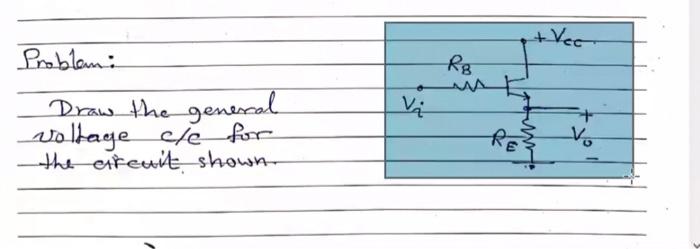 Problem:
Draw the general
voltage c/c for
the circuit shown.
+Vcc
RB
Vi
RE
+
Vo
-